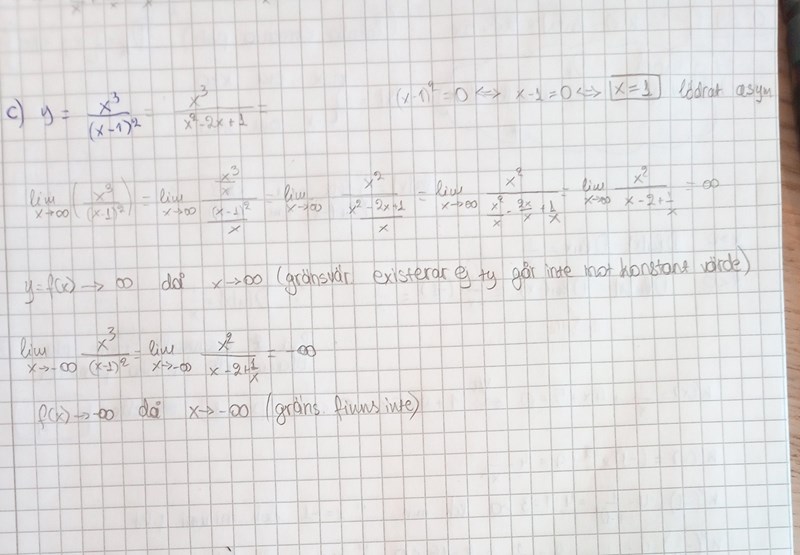 c) y = x³/(x-1)² = x³/(x²-2x+1) =
(x-1)² = 0 <=> x-1=0 <=> x=1 lodrät asym
lim x→∞ (x³/(x-1)²) = lim x→∞ (x³/x)/((x-1)²/x) = lim x→∞ x²/((x²-2x+1)/x) = lim x→∞ x²/(x²/x - 2x/x + 1/x) = lim x→∞ x²/(x-2+1/x) = ∞
y=f(x) → ∞ då x→∞ (gränsvär existerar ej ty går inte mot konstant värde)
lim x→-∞ x³/(x-1)² = lim x→-∞ x²/(x-2+1/x) = -∞
f(x) → -∞ då x→ -∞ (gräns finns inte)